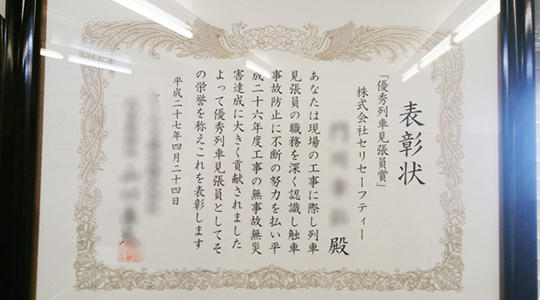 表彰状
「優秀列車見張員賞」
株式会社セリセーフティー
殿
あなたは現場の工事に際し列車
見張員の職務を深く認識し触車
事故防止に不断の努力を払い平
成二十六年度工事の無事故無災
害達成に大きく貢献されました
よって優秀列車見張員としてそ
の栄誉を称えこれを表彰します
平成二十七年四月二十四日